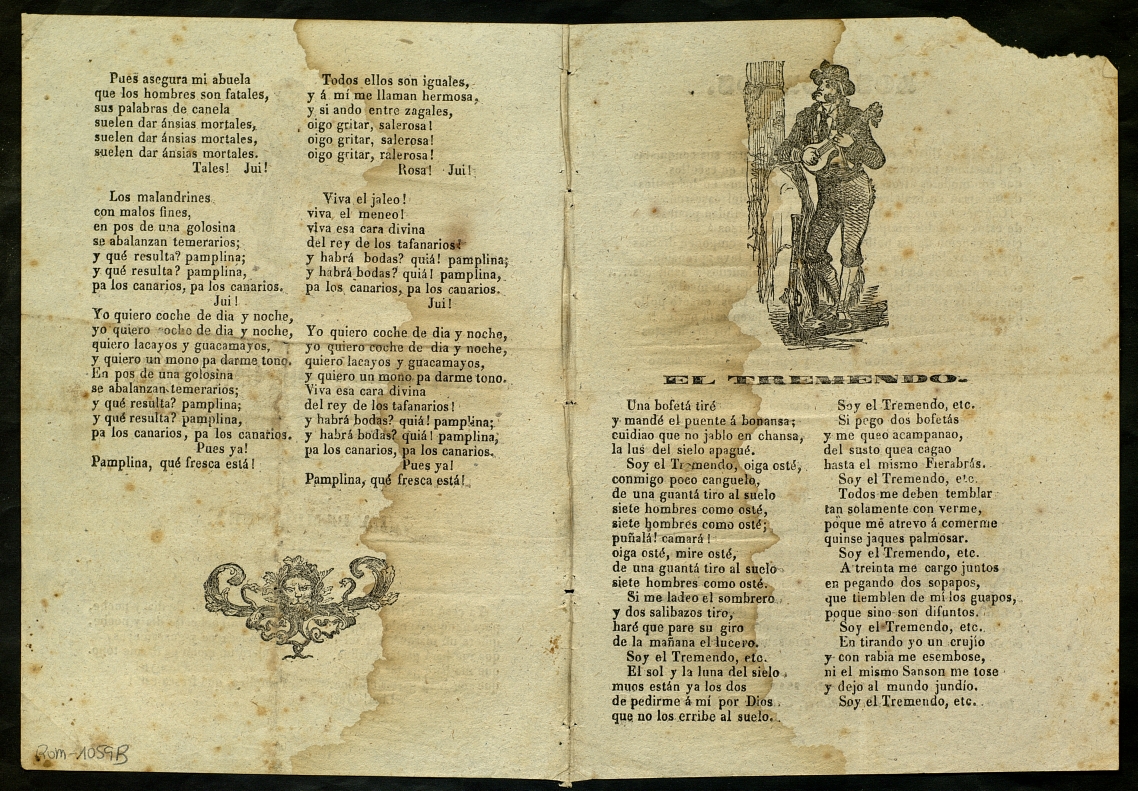 Pues asegura mi abuela
que los hombres son fatales,
sus palabras de canela
suelen dar ánsias mortales,
suelen dar ánsias mortales,
suelen dar ánsias mortales.
Tales! Jui!
Los malandrines
con malos fines,
en pos de una golosina
se abalanzan temerarios;
y qué resulta? pamplina;
y qué resulta? pamplina,
pa los canarios, pa los canarios.
Jui!
Yo quiero coche de dia y noche,
yo quiero coche de dia y noche,
quiero lacayos y guacamayos,
y quiero un mono pa darme tono.
En pos de una golosina
se abalanzan temerarios;
y qué resulta? pamplina;
y qué resulta? pamplina,
pa los canarios, pa los canarios.
Pues ya!
Pamplina, qué fresca está!
Todos ellos son iguales,
y á mí me llaman hermosa,
y si ando entre zagales,
oigo gritar, salerosa!
oigo gritar, salerosa!
oigo gritar, ralerosa!
Rosa! Jui!
Viva el jaleo!
viva el meneo!
viva esa cara divina
del rey de los tafanarios!
y habrá bodas? quiá! pamplina;
y habrá bodas? quiá! pamplina,
pa los canarios, pa los canarios.
Jui!
Yo quiero coche de dia y noche,
yo quiero coche de dia y noche,
quiero lacayos y guacamayos,
y quiero un mono pa darme tono.
Viva esa cara divina
del rey de los tafanarios!
y habrá bodas? quiá! pamplina;
y habrá bodas? quiá! pamplina,
pa los canarios, pa los canarios.
Pues ya!
Pamplina, qué fresca está!
Rom-1059B
EL TREMENDO.
Una bofetá tiré
y mandé el puente á bonansa;
cuidiao que no jablo en chansa,
la lus del sielo apagué.
Soy el Tremendo, oiga osté,
conmigo poco canguelo,
de una guantá tiro al suelo
siete hombres como osté,
siete hombres como osté;
puñalá! camará!
oiga osté, mire osté,
de una guantá tiro al suelo
siete hombres como osté.
Si me ladeo el sombrero
y dos salibazos tiro,
haré que pare su giro
de la mañana el lucero.
Soy el Tremendo, etc.
El sol y la luna del sielo
muos están ya los dos
de pedirme á mí por Dios
que no los erribe al suelo.
Soy el Tremendo, etc.
Si pego dos bofetás
y me queo acampanao,
del susto quea cagao
hasta el mismo Fierabrás.
Soy el Tremendo, etc.
Todos me deben temblar
tan solamente con verme,
poque me atrevo á comerme
quinse jaques palmosar.
Soy el Tremendo, etc.
A treinta me cargo juntos
en pegando dos sopapos,
que tiemblen de mi los guapos,
poque sino son difuntos.
Soy el Tremendo, etc.
En tirando yo un crujío
y con rabia me esembose,
ni el mismo Sanson me tose
y dejo al mundo jundío.
Soy el Tremendo, etc.